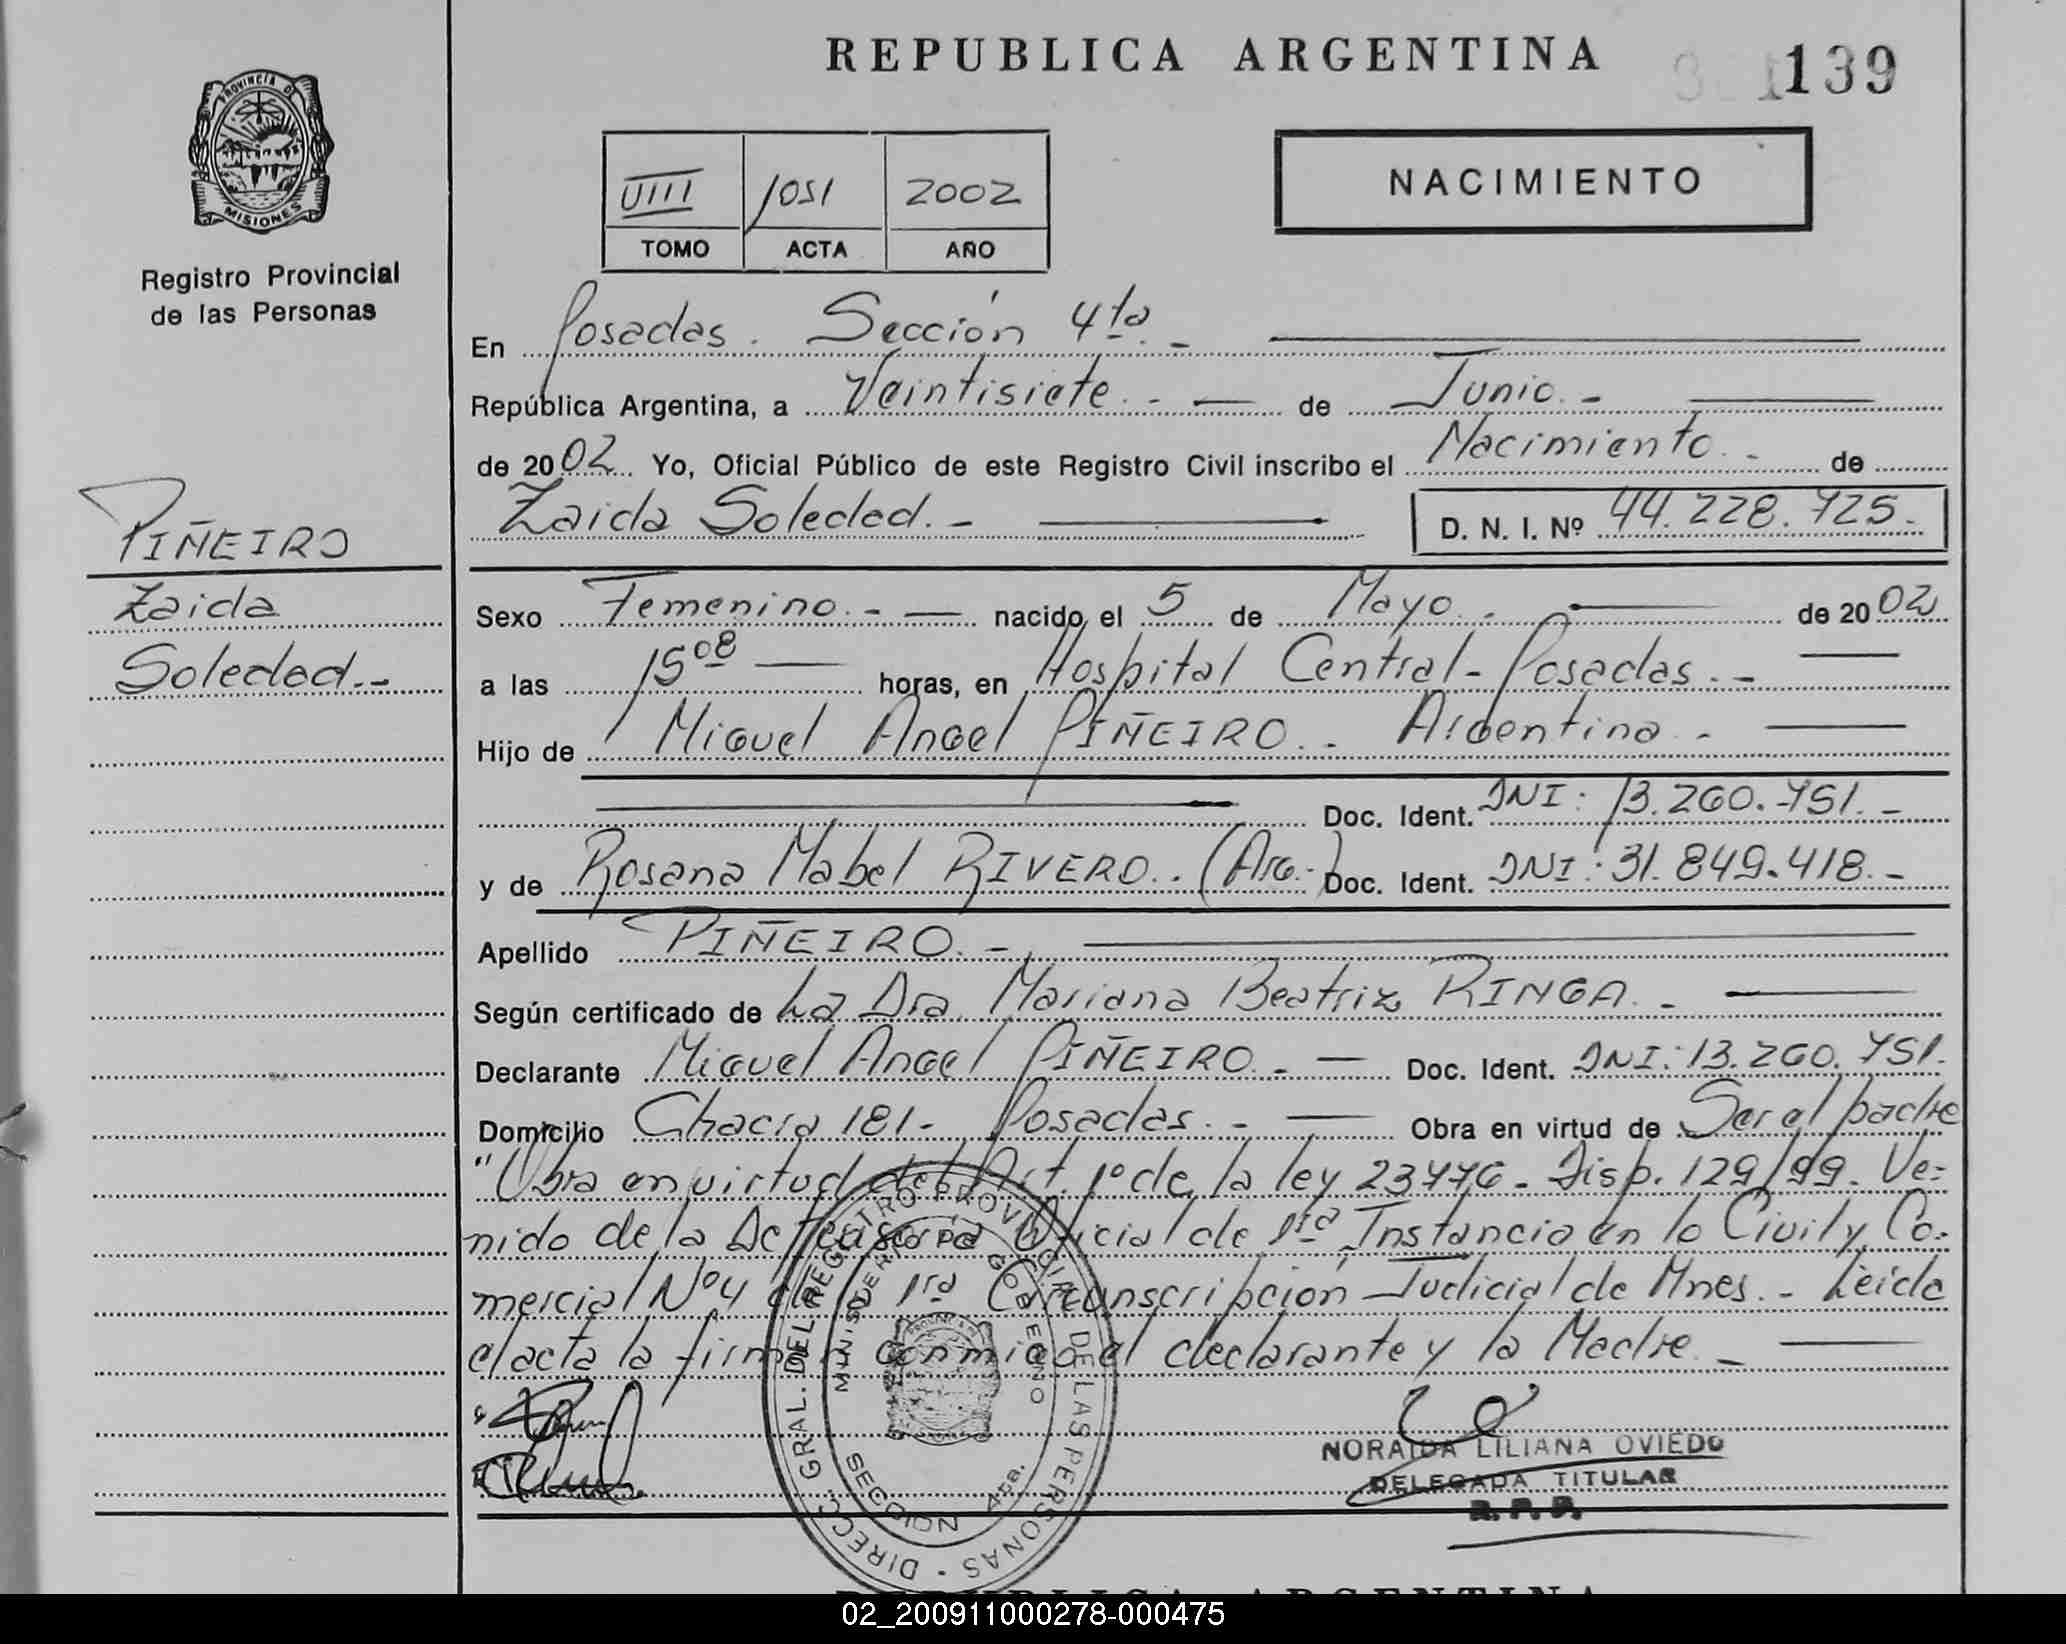 REPUBLICA ARGENTINA
139
PROVINCIA DE
MISIONES
Registro Provincial
de las Personas
VIII 1051 2002
TOMO ACTA AÑO
NACIMIENTO
En Posadas. Sección 4ta.-
República Argentina, a Veintisiete.- de Junio.-
de 2002 Yo, Oficial Público de este Registro Civil inscribo el Nacimiento.- de
Zaida Soledad.- D. N. I. Nº 44.228.725.-
PIÑEIRO
Zaida
Soledad.-
Sexo Femenino.- nacido el 5 de Mayo.- de 2002
a las 15 08 horas, en Hospital Central-Posadas.-
Hijo de Miguel Angel PIÑEIRO.- Argentina.-
Doc. Ident. DNI: 13.260.751.-
y de Rosana Mabel RIVERO.. (Arg.-) Doc. Ident. DNI: 31.849.418.-
Apellido PIÑEIRO.-
Según certificado de La Dra Mariana Beatriz RINGA.-
Declarante Miguel Angel PIÑEIRO.- Doc. Ident. DNI: 13.260.751.
Domicilio Chacra 181.- Posadas.- Obra en virtud de Ser el padre
"Obra en virtud del Art. 1º de la ley 23776. Disp. 129/99. Ve=
nido de la Defensoría Oficial de 1ra Instancia en lo Civil y Co=
mercial Nº4 de la 1ra Circunscripción Judicial de Mnes.- Leida
el acta la firman conmigo el declarante y la Madre.-
DIRECC. GRAL. DEL REGISTRO PROVINCIAL DE LAS PERSONAS
MINISTERIO DE GOBIERNO
SECCION 4ta.
NORAIDA LILIANA OVIEDO
DELEGADA TITULAR
R.P.P.
REPUBLICA ARGENTINA
02_200911000278-000475